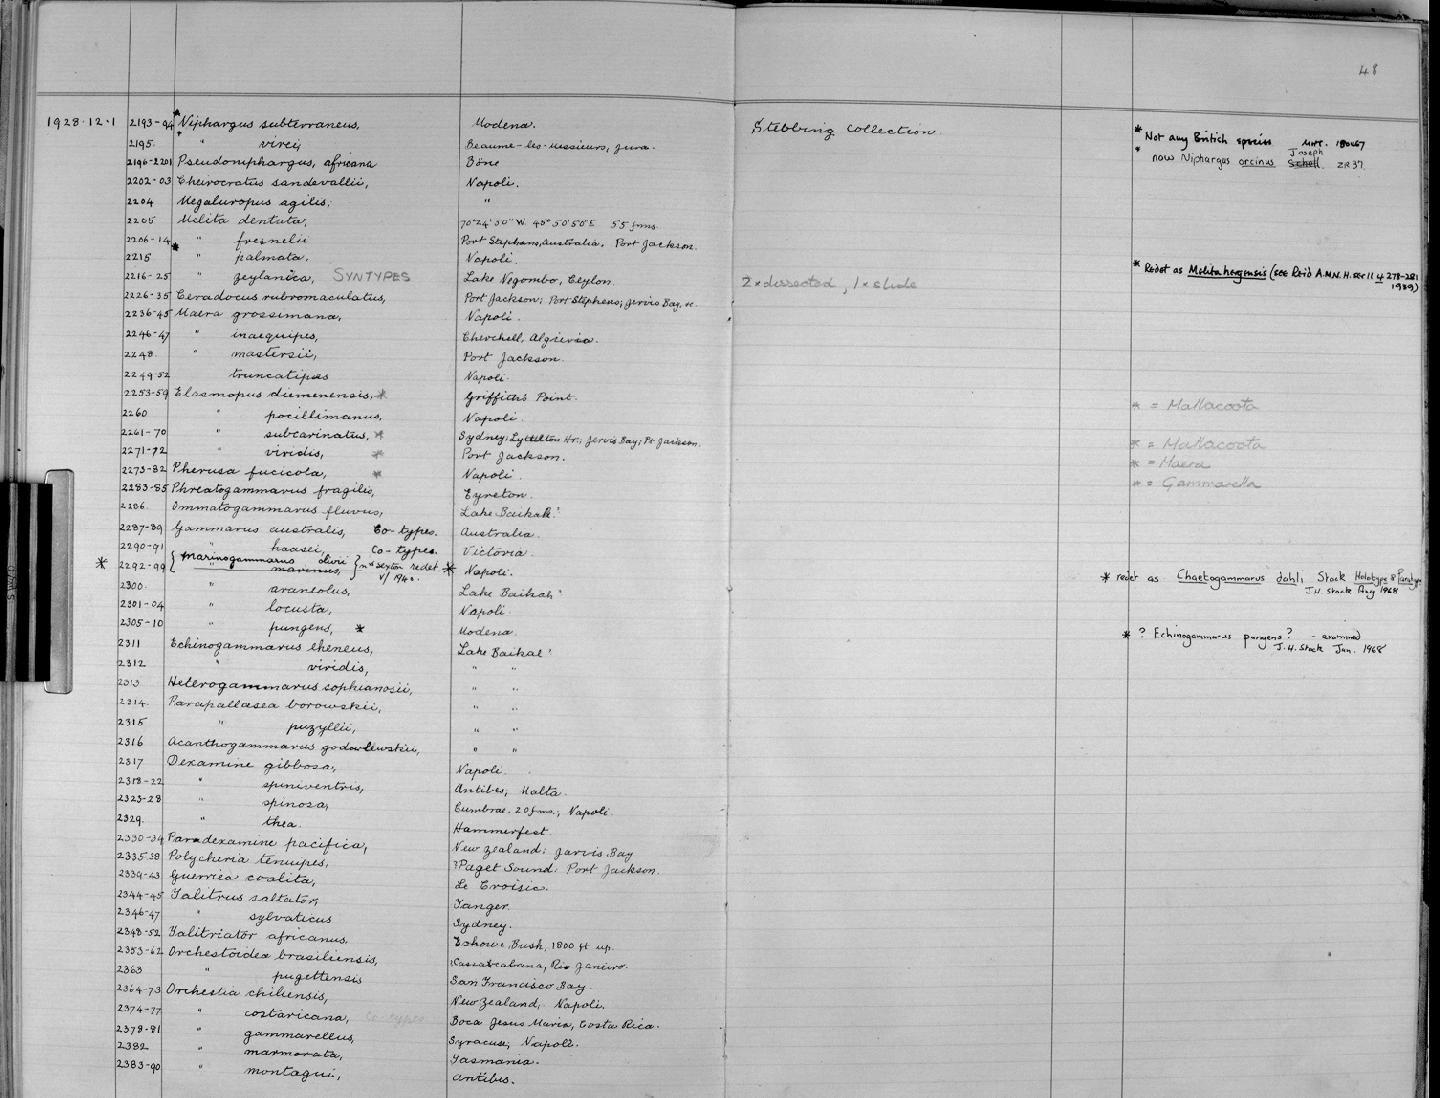 48
1928.12.1 2193-94 * Niphargus subterraneus, Modena. Stebbing Collection. * Not any British species
2195. " virei, Beaume-les-Messieurs, Jura. * now Niphargus orcinus Joseph Schell. ZR37.
2196-2201 Pseudoniphargus, africana Bône
2202-03 Cheirocratus sundevallii, Napoli.
2204 Megaluropus agilis; "
2205 Melita dentata, 55 fms.
2206-14 " fresnelii Port Stephens, Australia, Port Jackson.
2215 * " palmata, Napoli. * Redet as Melita hergensis (see Reid A.M.N.H. ser 11 4 278-281 1939)
2216-25 " zeylanica, SYNTYPES Lake Negombo, Ceylon. 2 x dissected, 1 x slide
2226-35 Ceradocus rubromaculatus, Port Jackson; Port Stephens; Jervis Bay, &c.
2236-45 Maera grossimana, Napoli.
2246-47 " inaequipes, Cherchell, Algieria.
2248. " mastersii, Port Jackson.
2249-52 truncatipes Napoli.
2253-59 Elasmopus diemenensis, * Griffiths Point. * = Mallacoota
2260 " pocillimanus, Napoli.
2261-70 " subcarinatus, * Sydney; Lyttelton Hr.; Jervis Bay; Pt Jackson. * = Mallacoota
2271-72 " viridis, * Port Jackson. * = Maera
2273-82 Pherusa fucicola, * Napoli. * = Gammarella
2283-85 Phreatogammarus fragilis, Eyreton.
2286. Ommatogammarus flavus, Lake Baikal.
2287-89 Gammarus australis, Co-types. Australia.
2290-91 " haasei, Co-types. Victoria.
* 2292-99 { Marinogammarus olivii " marinus, } Sexton redet V/1940. * Napoli. * redet as Chaetogammarus dahli Stock Holotype & Paratype
J.H. Stock Aug 1968
2300. " araneolus, Lake Baikal
2301-04 " locusta, Napoli.
2305-10 " pungens, * Modena. * ? Echinogammarus pungens? - examined
J.H. Stock Jan. 1968
2311 Echinogammarus lheneus, Lake Baikal
2312 " viridis, " "
2313 Heterogammarus sophianosii, " "
2314. Parapallasea borowskii, " "
2315 " puzyllii, " "
2316 Acanthogammarus godlewskii, " "
2317 Dexamine gibbosa, Napoli.
2318-22 " spiniventris, Antibes, Malta.
2323-28 " spinosa, Cumbrae. 20 fms., Napoli.
2329. " thea. Hammerfest.
2330-34 Paradexamine pacifica, New Zealand; Jarvis Bay
2335-38 Polycheria tenuipes, ?Paget Sound. Port Jackson.
2339-43 Guernea coalita, Le Croisic.
2344-45 Talitrus saltator, Tanger.
2346-47 " sylvaticus Sydney.
2348-52 Talitriator africanus, Eshowe, Bush, 1800 ft up.
2353-62 Orchestoidea brasiliensis, Rio Janeiro.
2363 " pugettensis San Francisco Bay.
2364-73 Orchestia chiliensis, New Zealand, Napoli.
2374-77 " costaricana, Co-types Boca Jesus Maria, Costa Rica.
2378-81 " gammarellus, Syracuse, Napoli.
2382 " marmorata, Tasmania.
2383-90 " montagui, Antibes.